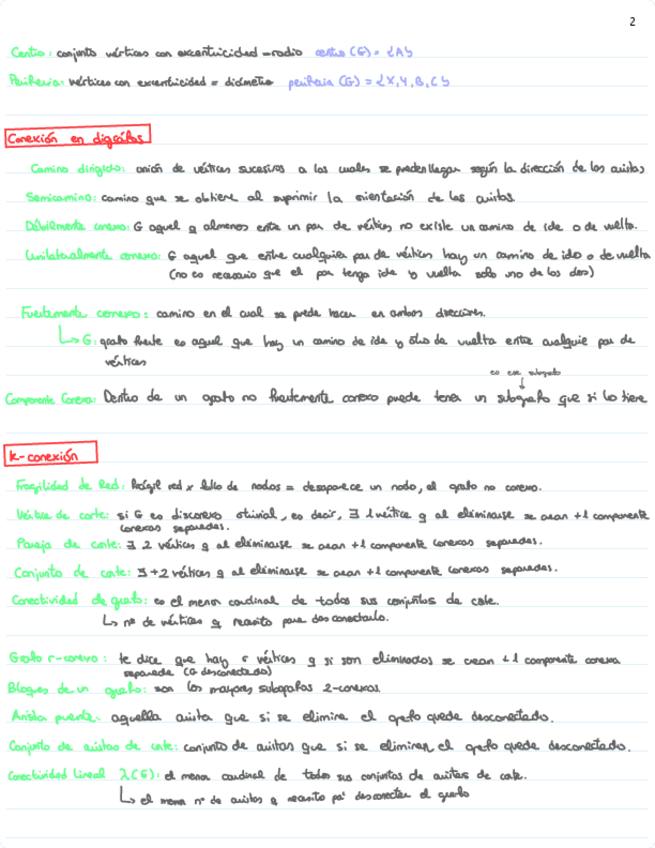 2
Centro: conjunto vértices con excentricidad = radio centro (G) = {A}
Periferia: vértices con excentricidad = diámetro periferia (G) = {X, Y, B, C}
Conexión en digrafos
Camino dirigido: unión de vértices sucesivos a los cuales se pueden llegar según la dirección de las aristas
Semicamino: camino que se obtiene al suprimir la orientación de las aristas.
Débilmente conexo: G aquel q almenos entre un par de vértices no existe un camino de ida o de vuelta.
Unilateralmente conexo: G aquel que entre cualquier par de vértices hay un camino de ida o de vuelta
(no es necesario que el par tenga ida y vuelta solo uno de los dos)
Fuertemente conexo: camino en el cual se puede hacer en ambas direcciones.
↳ G: grafo fuerte es aquel que hay un camino de ida y otro de vuelta entre cualquie par de
vértices
es ese subgrafo
Componente Conexa: Dentro de un grafo no fuertemente conexo puede tener un subgrafo que si lo tiene
k-conexión
Fragilidad de Red: frágil red x fallo de nodos = desaparece un nodo, el grafo no conexo.
Vértice de corte: si G es disconexo trivial, es decir, ∃ 1 vértice q al eliminarse se crean +1 componente
conexas separadas.
Pareja de corte: ∃ 2 vértices q al eliminarse se crean +1 componente conexas separadas.
Conjunto de corte: ∃ +2 vértices q al eliminarse se crean +1 componente conexas separadas.
Conectividad de grafo: es el menor cardinal de todos sus conjuntos de corte.
↳ nº de vértices q necesito para desconectarlo.
Grafo r-conexo: te dice que hay r vértices q si son eliminados se crean +1 componente conexa
separada (G desconectado)
Bloques de un grafo: son los mayores subgrafos 2-conexos.
Arista puente: aquella arista que si se elimina el grafo quede desconectado.
Conjunto de aristas de corte: conjunto de aristas que si se eliminan el grafo quede desconectado.
Conectividad Lineal λ(G): el menor cardinal de todos sus conjuntos de aristas de corte.
↳ el menor nº de aristas q necesito pa' desconectar el grafo